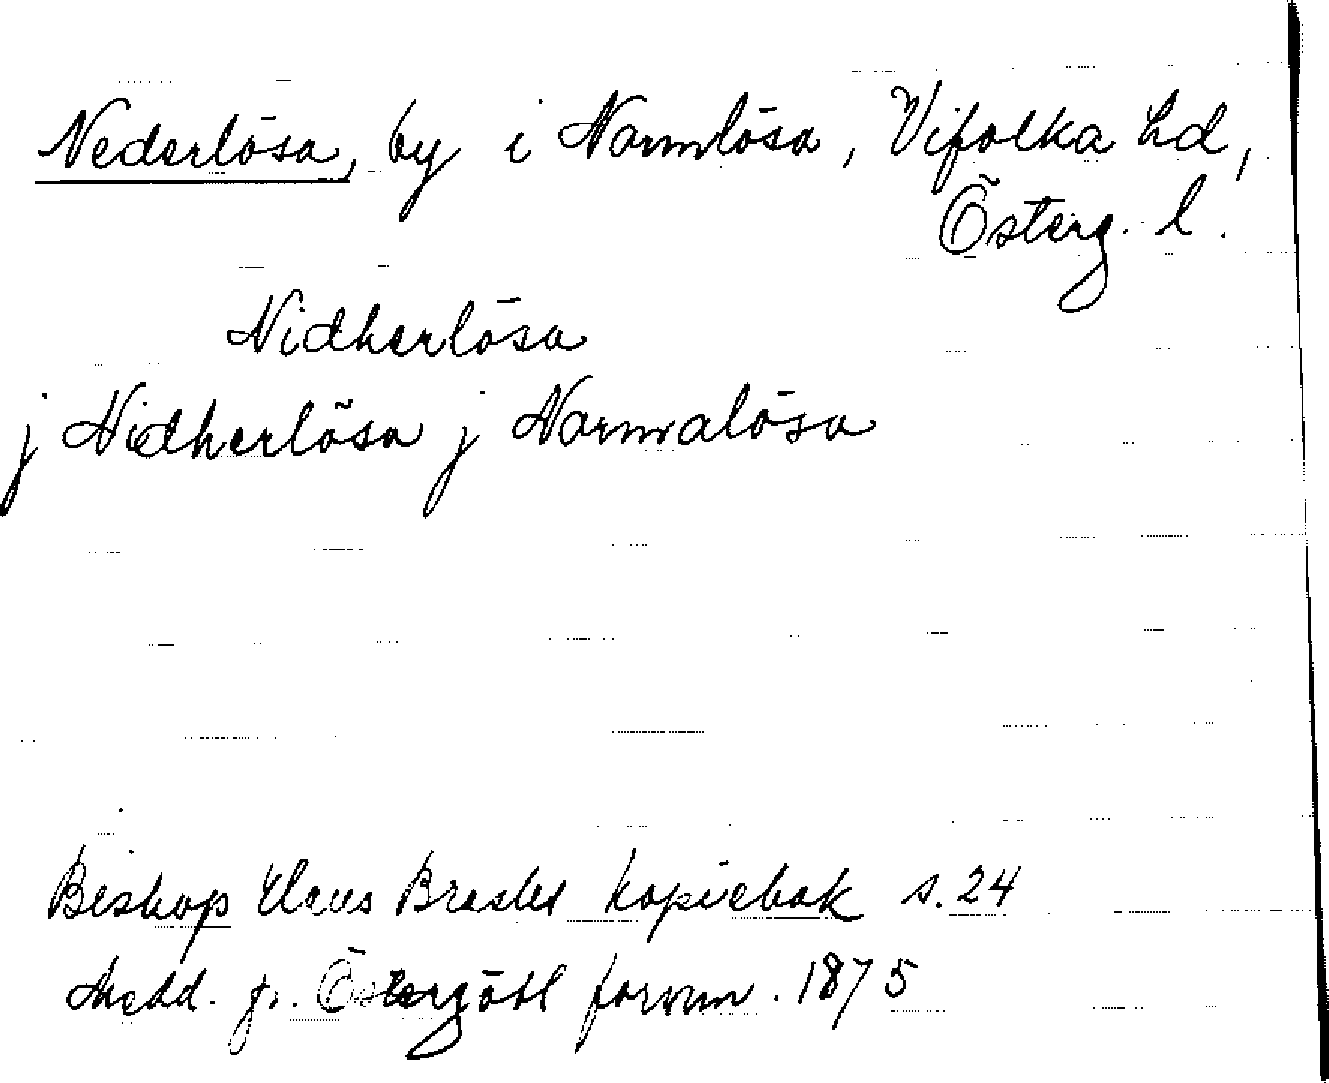 Nederlösa, by i Normlösa, Vifolka hd,
Österg. l.
Nidherlösa
j Nidherlösa j Normalösa
Biskop Claus Brasks kopiebok s. 24
Medd. fr. Östergötl fornm. 1875